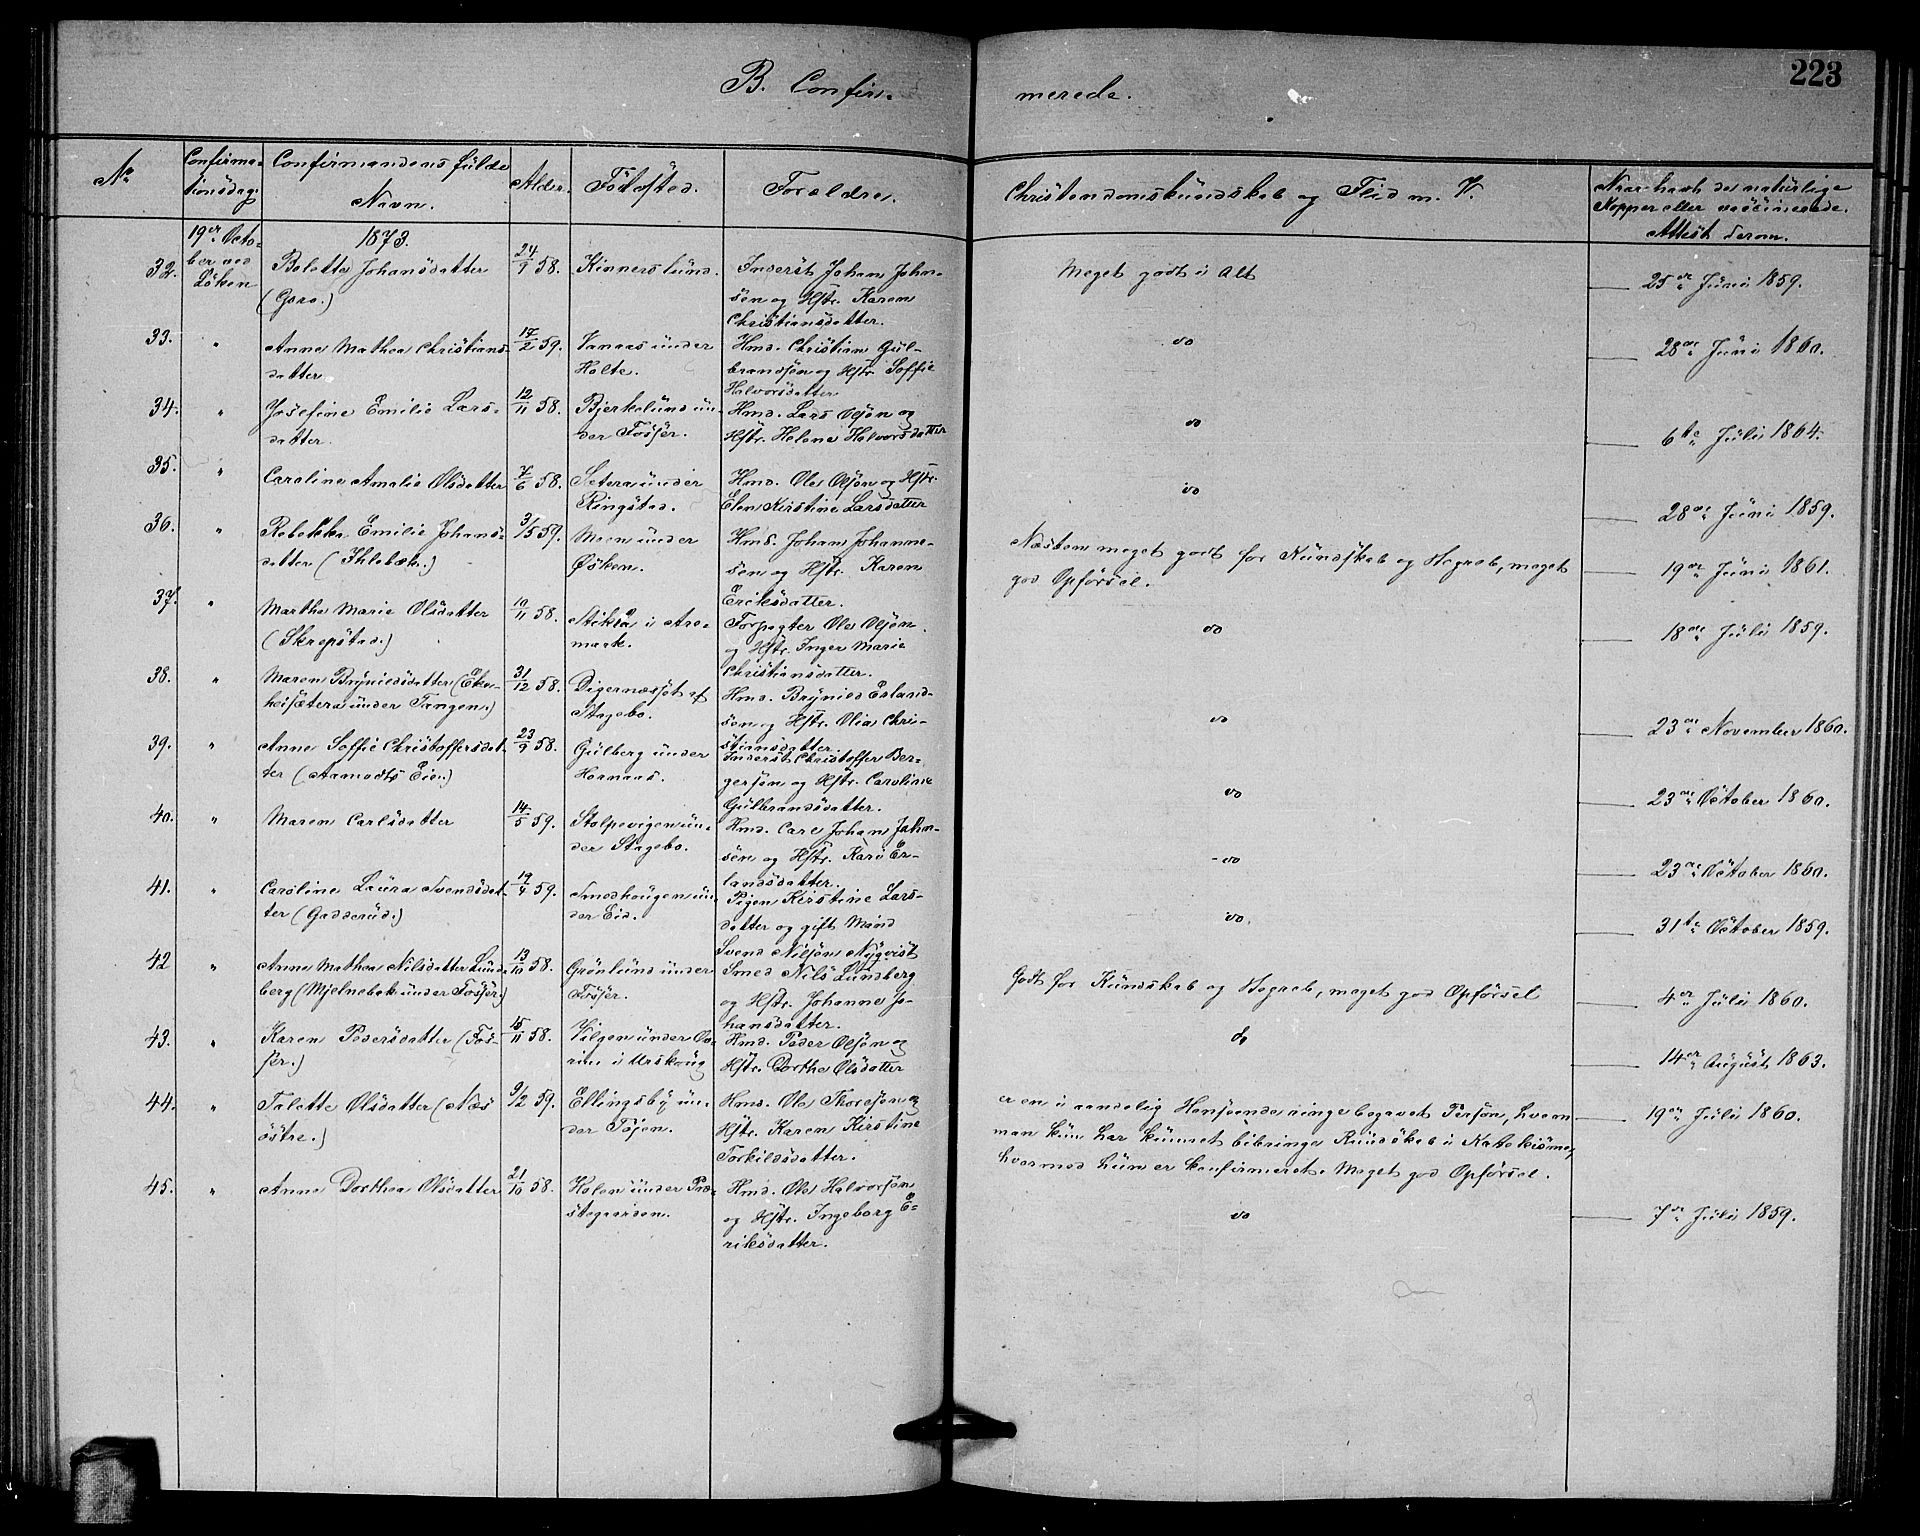 223
B. Confir-
merede.
No
Confirma-
tionsdag.
Confirmandens fulde
Navn.
Alder.
Födested.
Forældre.
Christendomskundskab og Flid m. V.
Naar havt de naturlige
Kopper eller vaccinerede.
Attest derom.
19er Octo-
ber ved
Löken
1873.
32. Bolette Johansdatter
24/9 58. Kinnerslund. Inderst Johan Johan-
sen og Hstr. Karen
Christiansdatter.
Meget godt i Alt
25de Juni 1859.
33. " Anne Mathea Christians-
datter
17/2 59. Vanaas under
Holte.
Hmd. Christian Gul-
brandsen og Hstr. Soffie
Halvorsdatter
do
28de Juni 1860.
34. " Josefine Emilie Lars-
datter.
12/11 58. Bjerkelund un-
der Fosser.
Hmd. Lars Olsön og
Hstr. Helene Halvorsdatter
do
6te Juli 1864.
35. " Caroline Amalie Olsdatter
7/6 58. Setera under
Ringstad.
Hmd. Ole Olsön og Hstr.
Elen Kirstine Larsdatter
do
28de Juni 1859.
36. " Rebekka Emilie Johans-
datter (Ihlebæk.)
3/5 59. Moen under
Øsken.
Hmd. Johan Johanne-
sen og Hstr. Karen
Eriksdatter.
Næsten meget godt for Kundskab og Begreb, meget
god Opførsel.
19de Juni 1861.
37. " Marthe Marie Olsdatter
(Skrepstad.)
19/11 58. Stiksa i Are-
mark.
Forpagter Ole Olsön
og Hstr. Inger Marie
Christiansdatter.
do
18de Juli 1859.
38. " Maren Brynildsdatter (Eke-
heisætera under Tangen.)
31/12 58. Digernæssjöt af
Stagebo.
Hmd. Brynild Erland-
sen og Hstr. Olia Chri-
stiansdatter.
do
23de November 1860.
39. " Anne Soffie Christoffersdat-
ter (Aamodts Eie.)
23/9 58. Gulberg under
Haanaas.
Inderst Christoffer Ber-
gersön og Hstr. Caroline
Gulbrandsdatter.
do
23de October 1860.
40. " Maren Carlsdatter
14/5 59. Stolpevigen un-
der Stagebo.
Hmd. Carl Johan Johan-
sen og Hstr. Kari Er-
landsdatter.
do
23de October 1860.
41. " Caroline Laura Svendsdat-
ter (Gadderud.)
19/4 59. Smedhaugen un-
der Eid.
Pigen Kirstine Lars-
datter og gift Mand
Svend Nilsön Nyqvist
do.
31te October 1859.
42 " Anne Mathea Nilsdatter Lund-
berg (Mjelnebæk under Fosser.)
13/10 58. Grönlund under
Fosser.
Smed Nils Lundberg
og Hstr. Johanne Jo-
hansdatter.
Godt for Kundskab og Begreb, meget god Opførsel
4de Juli 1860.
43. " Karen Pedersdatter (Fos-
ser.)
15/11 58. under
i Urskoug
Hmd. Peder Olsön og
Hstr. Dorthea Olsdatter
do
14de August 1863.
44. " Talette Olsdatter (Næs
östre.)
9/2 59. Ellingsby un-
der Töien.
Hmd. Ole Thoresön og
Hstr. Karen Kirstine
Torkildsdatter.
er en i aandelig Henseende ringe begavet Person, hvem
man kun har kunnet bibringe Kundskab i Katekisme,
hvormed hun er konfirmeret. Meget god Opførsel.
19de Juli 1860.
45. " Anne Dorthea Olsdatter
21/10 58. Holen under Præ-
stegaarden.
Hmd. Ole Halvorsön
og Hstr. Ingeborg E-
riksdatter.
do
7de Juli 1859.